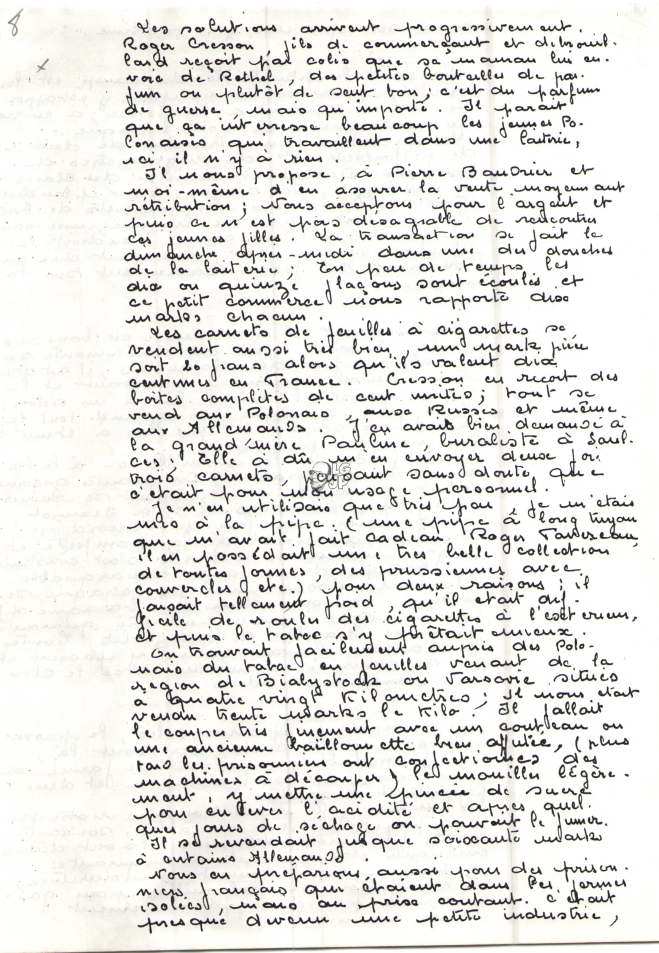 8
x
Les solutions arrivent progressivement.
Roger Cresson, fils de commerçant et débrouil-
lard reçoit par colis que sa maman lui en-
voie de Rethel, des petites bouteilles de par-
fum ou plutôt de sent bon ; c'est du parfum
de guerre, mais qu'importe. Il parait
que ça intéresse beaucoup les jeunes Po-
lonaises qui travaillent dans une laiterie,
ici il n'y à rien.
Il nous propose, à Pierre Baudrier et
moi-même d'en assurer la vente moyennant
rétribution ; nous acceptons pour l'argent et
puis ce n'est pas désagréable de rencontrer
ces jeunes filles. La transaction se fait le
dimanche après-midi dans une des douches
de la laiterie ; En peu de temps les
dix ou quinze flacons sont écoulés et
ce petit commerce nous rapporte dix
marks chacun.
Les carnets de feuilles à cigarettes se
vendent aussi très bien, un mark pièce
soit 20 francs alors qu'ils valent dix
centimes en France. Cresson en reçoit des
boîtes complètes de cent unités ; tout se
vend aux Polonais, aux Russes et même
aux Allemands. J'en avais bien demandé à
la grand'mère Pauline, buraliste à Saul-
ces ; Elle à dû m'en envoyer deux foi
trois carnets, pensant sans doute que
c'était pour mon usage personnel.
Je n'en utilisais que très peu, je m'étais
mis à la pipe. (une pipe à long tuyau
que m'avait fait cadeau Roger
il en possédait une très belle collection
de toutes formes, des prussiennes avec
couvercles etc.) pour deux raisons ; il
faisait tellement froid, qu'il était dif-
ficile de rouler des cigarettes à l'extérieur,
et puis le tabac s'y prêtait mieux.
On trouvait facilement auprès des Polo-
nais du tabac en feuilles venant de la
région de Bialystock ou Varsovie situés
à quatre vingt Kilomètres ; Il nous était
vendu trente marks le Kilo. Il fallait
le couper très finement avec un couteau ou
une ancienne baïllonnette bien affutée, (plus
tard les prisonniers ont confectionnés des
machines à découper) le mouiller légère-
ment, y mettre une pincée de sucre
pour enlever l'acidité et après quel-
ques jours de séchage on pouvait le fumer.
Il se revendait jusque soixante marks
à certains Allemands.
Nous en préparions aussi pour des prison-
niers français qui étaient dans les fermes
isolées, mais au prise coutant. C'était
presque devenu une petite industrie,
LG
JP